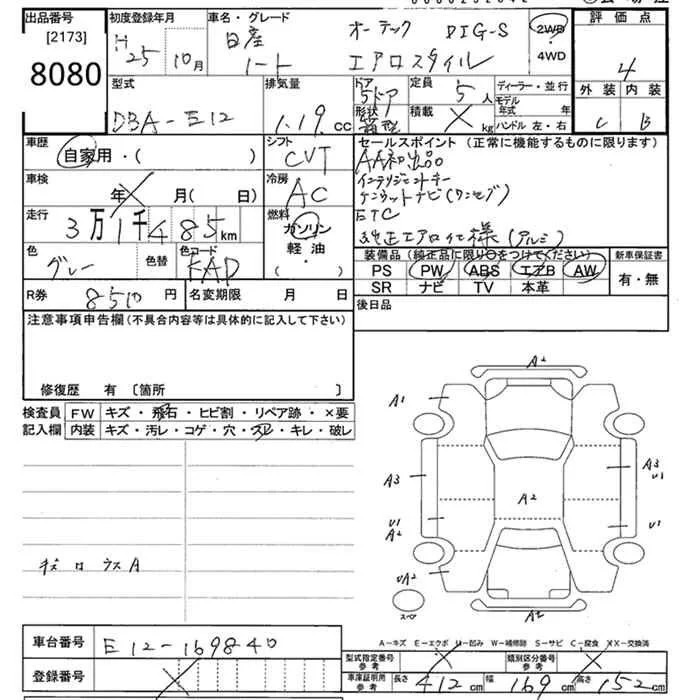 出品番号 初度登録年月 車名・グレード 評価点
[2173] H 25 10月 日産 オーテック DIG-S 2WD
8080 ノート エアロスタイル ・4WD 4
型式 排気量 ドア 定員 ディーラー・並行 外装 内装
DBA-E12 1.19 cc 5ドア 5人 モデル年式 年 C B
形状 箱型 積載 X kg ハンドル 左・右
車歴 シフト セールスポイント (正常に機能するものに限ります)
自家用・( ) CVT AA初出品
車検 冷房 インテリジェントキー
年 X 月( 日) AC ケンウッドナビ(ワンセグ)
走行 燃料 ETC
3万1千485km ガソリン 純正エアロ仕様(アルミ)
色 色替 色コード 軽油 装備品(純正品に限り○をつけてください) 新車保証書
グレー KAD ・( ) PS PW ABS エアB AW 有・無
R券 8510円 名変期限 月 日 SR ナビ TV 本革
注意事項申告欄(不具合内容等は具体的に記入して下さい) 後日品
修復歴 有 〔箇所 〕
検査員 FW キズ・飛石・ヒビ割・リペア跡・×要
記入欄 内装 キズ・汚レ・コゲ・穴・スレ・キレ・破レ
A2
A1
A3 A3 U1
A2
U1 A2 U1
UA2
スペア
A2
A-キズ E-エクボ U-凹み W-補修跡 S-サビ C-腐食 XX-交換済
車台番号 E12-169840
型式指定番号 参考 X 類別区分番号 参考 X
登録番号 X 車庫証明用 参考 長さ 412cm 幅 169cm 高さ 152cm